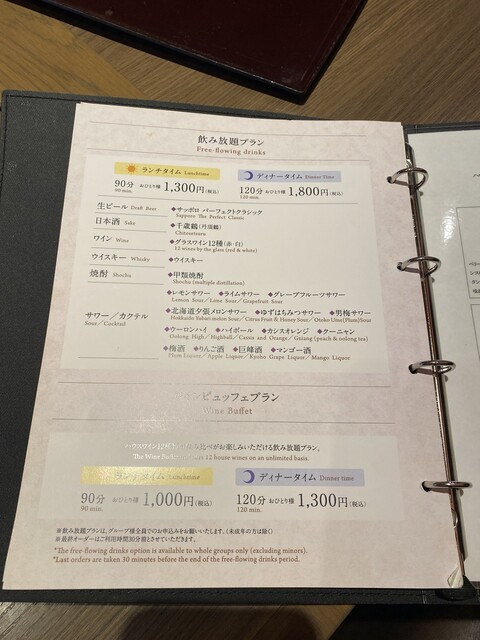 飲み放題プラン
Free-flowing drinks
ランチタイム Lunchtime
90分 おひとり様 1,300円(税込)
90 min.
ディナータイム Dinner Time
120分 おひとり様 1,800円(税込)
120 min.
生ビール Draft Beer
◆サッポロ パーフェクトクラシック
Sapporo The Perfect Classic
日本酒 Sake
◆千歳鶴(丹頂鶴)
Chitosetsuru
ワイン Wine
◆グラスワイン12種(赤・白)
12 wines by the glass (red & white)
ウイスキー Whisky
◆ウイスキー
焼酎 Shochu
◆甲類焼酎
Shochu (multiple distillation)
サワー／カクテル
Sour／Cocktail
◆レモンサワー ◆ライムサワー ◆グレープフルーツサワー
Lemon Sour／Lime Sour／Grapefruit Sour
◆北海道夕張メロンサワー ◆ゆずはちみつサワー ◆男梅サワー
Hokkaido Yubari melon Sour／Citrus Fruit & Honey Sour／Otoko Ume(Plum)Sour
◆ウーロンハイ ◆ハイボール ◆カシスオレンジ ◆クーニャン
Oolong High／Highball／Cassis and Orange／Gniang (peach & oolong tea)
◆梅酒 ◆りんご酒 ◆巨峰酒 ◆マンゴー酒
Plum Liquor／Apple Liquor／Kyoho Grape Liquor／Mango Liquor
ンビュッフェプラン
Wine Buffet
ハウスワイン12種 飲み比べがお楽しみいただける飲み放題プラン。
The Wine 12 house wines on an unlimited basis.
ランチタイム Lunchtime
90分 おひとり様 1,000円(税込)
90 min.
ディナータイム Dinner time
120分 おひとり様 1,300円(税込)
120 min.
※飲み放題プランは、グループ様全員でのお申込みをお願いいたします。(未成年の方は除く)
※最終オーダーはご利用時間30分前とさせていただきます。
*The free-flowing drinks option is available to whole groups only (excluding minors).
*Last orders are taken 30 minutes before the end of the free-flowing drinks period.